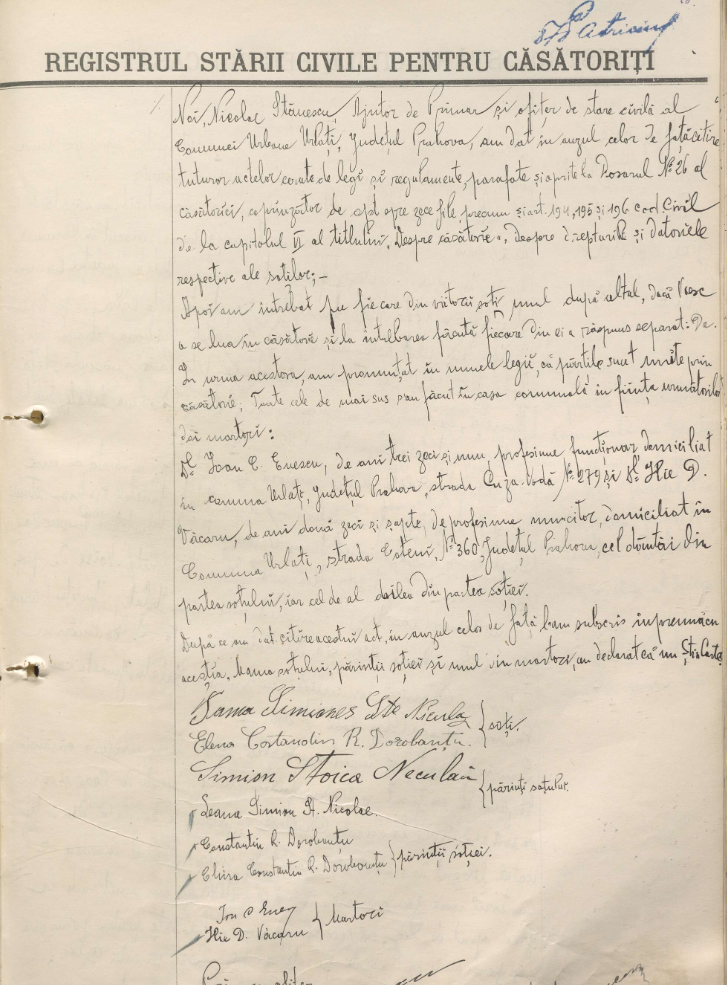 REGISTRUL STĂRII CIVILE PENTRU CĂSĂTORIȚI
Noi, Nicolae Stănescu, Ajutor de Primar și ofițer de stare civilă al
Comunei Urbane Urlați, Județul Prahova, am dat în auzul celor de față, citire
tuturor actelor cerute de legi și regulamente, parafate și oprite la Dosarul No 26 al
căsătoriei, coprinzător de șapte spre zece file, precum și art. 194, 195 și 196 cod. Civil
de la capitolul VI al titlului „Despre căsătorie", despre drepturile și datoriile
respective ale soților;—
Apoi am întrebat pe fiecare din viitorii soți, unul după altul, dacă voesc
a se lua în căsătorie și la întrebarea făcută fiecare din ei a răspuns separat: Da.
În urma acestora, am pronunțat în numele legii, că părțile sunt unite prin
căsătorie; Toate cele de mai sus s'au făcut în casa comunală în ființa următorilor
doi martori:
Dl. Ioan C. Enescu, de ani trei zeci și unu, profesiune funcționar domiciliat
în comuna Urlați, Județul Prahova, strada Cuza-Vodă No. 279 și Dl. Ilie D.
Văcaru, de ani două zeci și șapte, de profesiune muncitor, domiciliat în
Comuna Urlați, strada No 360, Județul Prahova, cel dintâi din
partea soțului, iar cel de al doilea din partea soției.
După ce am dat citire acestui act, în auzul celor de față l-am subscris împreună cu
aceștia. Mama soțului, părinții soției și unul din martori, au declarat că nu știu Carte
Simion Niculae
Elena Costandin R. Dorobanțu } soți.
Simion Stoica Neculai
Leana Simion St. Nicolae } părinți soțului.
Constantin R. Dorobanțu
Constantin R. Dorobanțu } părinții soției.
Ion C Enes
Ilie D. Văcaru } Martori